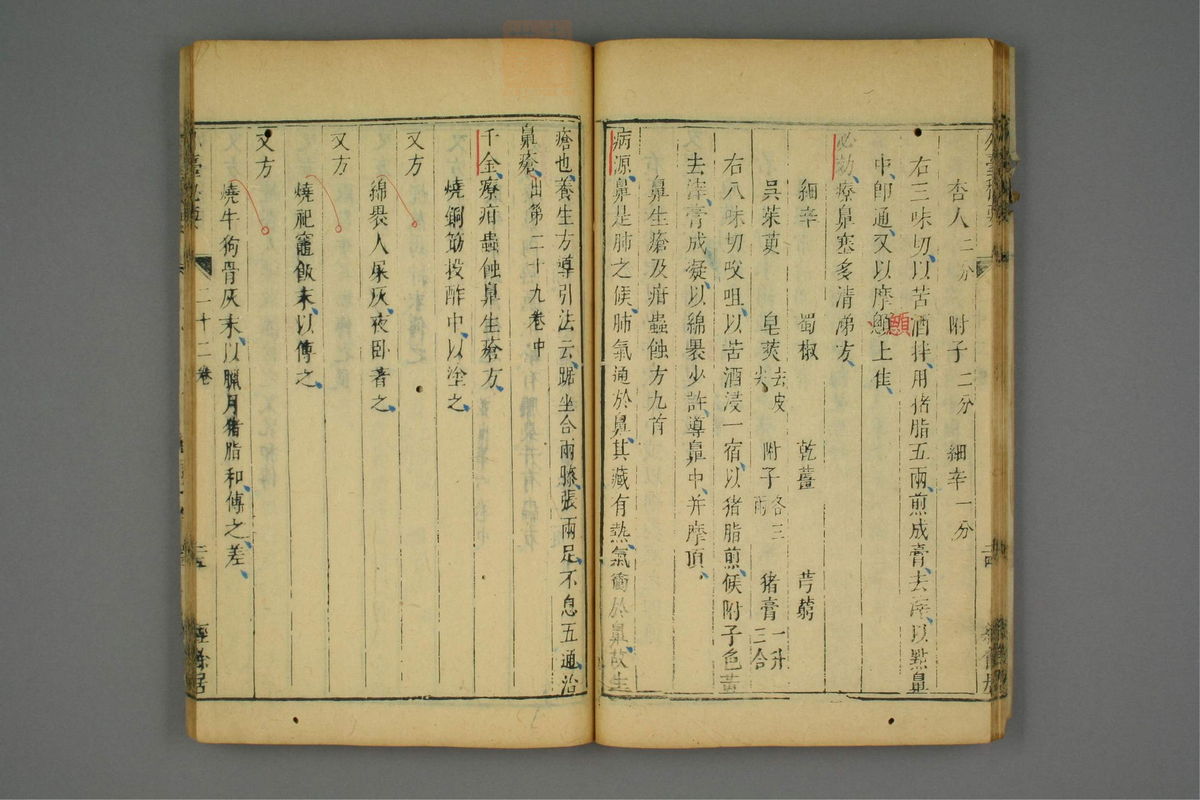 杏人二分　附子二分　細辛一分
右三味切以苦酒拌用猪脂五兩煎成膏去滓以點鼻
中即通又以摩顖上佳
顖
必効療鼻塞多清涕方
細辛　蜀椒　乾薑　芎藭
吳茱萸　皂莢去皮尖　附子各三兩　猪膏一升三合
右八味切㕮咀以苦酒浸一宿以猪脂煎候附子色黃
去滓膏成凝以綿褁少許導鼻中并摩頂
鼻生瘡及疳蟲蝕方九首
病源鼻是肺之候肺氣通於鼻其藏有熱氣衝於鼻故生
瘡也養生方導引法云踞坐合兩膝張兩足不息五通治
鼻瘡出第二十九卷中
千金療疳蟲蝕鼻生瘡方
燒銅筯投酢中以塗之
又方
綿褁人屎灰夜卧著之
又方
燒祀竈飯末以傅之
又方
燒牛狗骨灰末以臘月猪脂和傅之差
二十二卷
經餘居